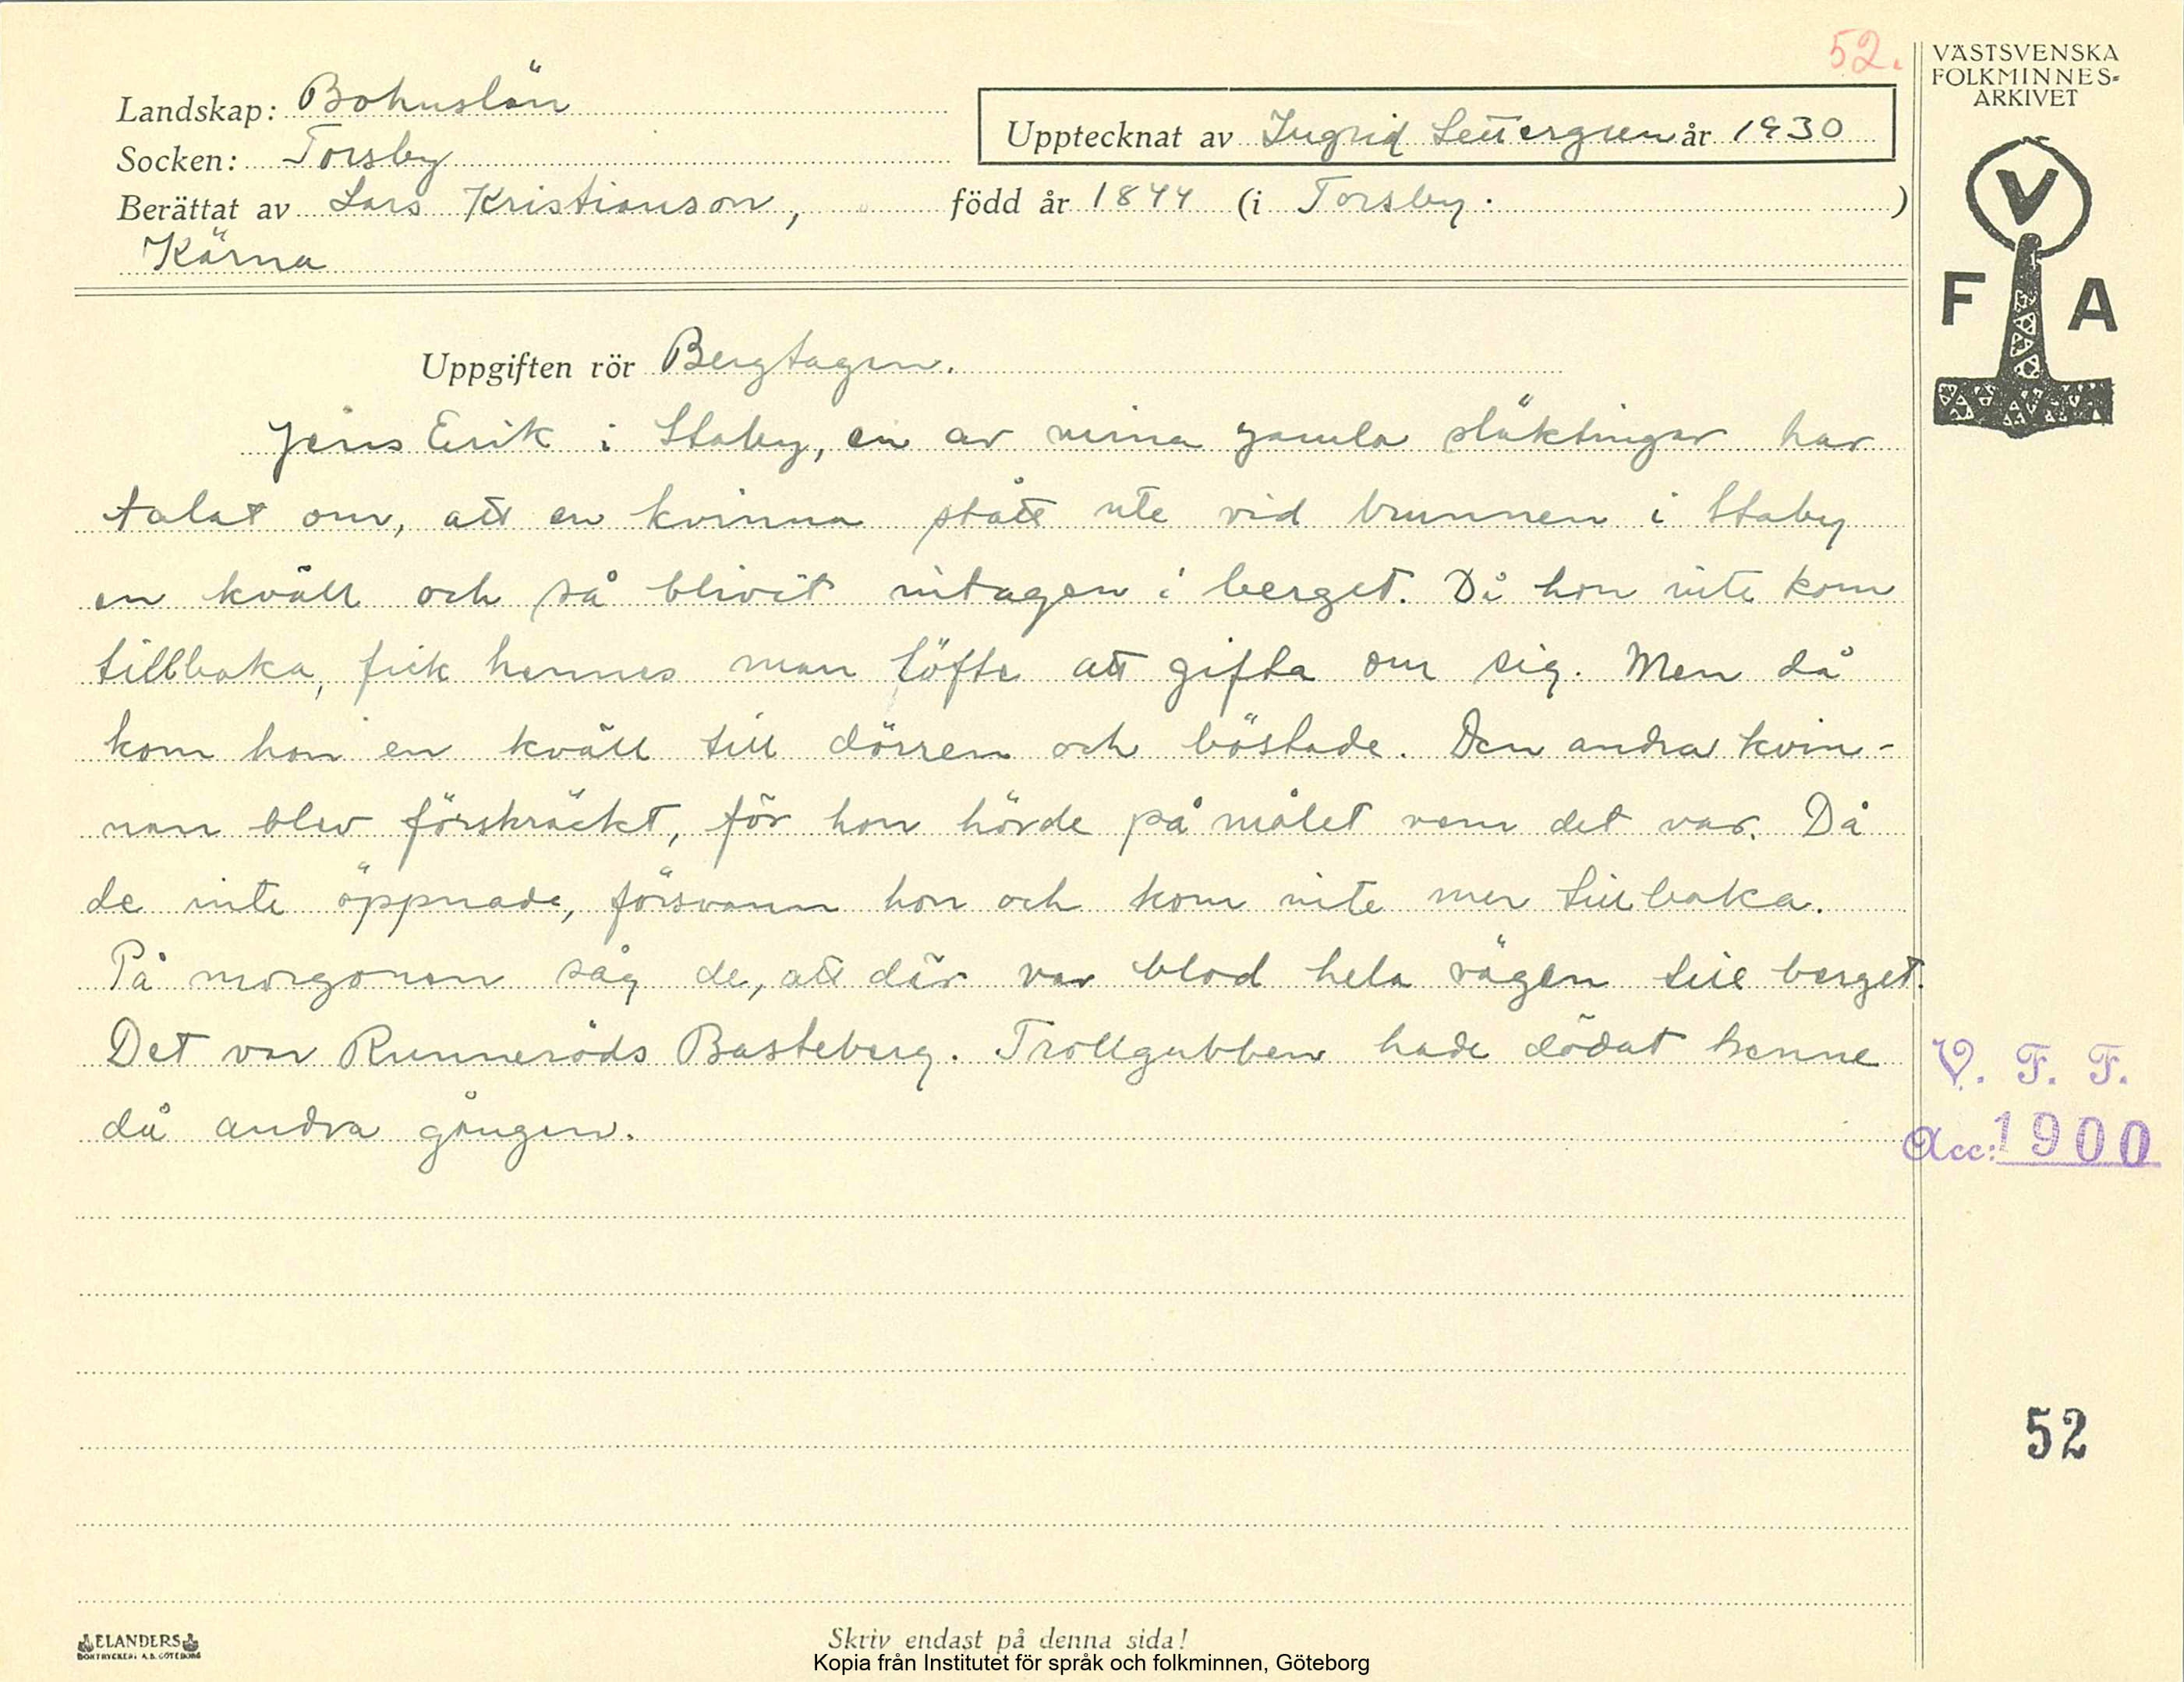 52.
VÄSTSVENSKA
FOLKMINNES-
ARKIVET
Landskap: Bohuslän
Upptecknat av Ingrid Settergren år 1930
Socken: Torsby
Berättat av Lars Kristianson, född år 1844 (i Torsby.)
Kärna
V
F A
Uppgiften rör Bergtagen.
Jens Erik i Staby, en av mina gamla släktingar har
talat om, att en kvinna stått ute vid brunnen i Staby
en kväll och så blivit intagen i berget. Då hon inte kom
tillbaka, fick hennes man löfte att gifta om sig. Men då
kom hon en kväll till dörren och böstade. Den andra kvin-
nan blev förskräckt, för hon hörde på målet vem det var. Då
de inte öppnade, försvann hon och kom inte mer tillbaka.
På morgonen såg de, att där var blod hela vägen till berget.
Det var Runneröds Basteberg. Trollgubben hade dödat henne
då andra gången.
V. F. F.
Acc: 1900
52
ELANDERS
BOKTRYCKERI A.B. GÖTEBORG
Skriv endast på denna sida!
Kopia från Institutet för språk och folkminnen, Göteborg